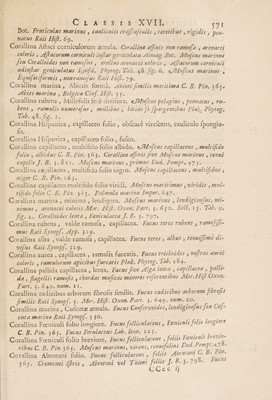 CLASSIS XVII. 571
Bot. Fruticulus marinus, cauliculis crassiusculis, teretibus, rigidis, pennatus Raii Hist. 69.
Corallina Astaci corniculorum æmula. Corallina affinis non ramosa, arenacei
coloris, Astacorum corniculi instar geniculata Ariag. Bot. Muscus marinus
seu Coralloides non ramosus, erectus arenacei coloris, Astacorum corniculi
adinstar geniculatus Lysd. Phytog. Tab. 48. fig. 6. Muscus marinus,
Equisetiformis, non ramosus Raii Hist. 79.
Corallina marina, Abietis formâ. Abieti similis maritima C. B. Pin. 365.
Abies marina, Belgica Clus. Hist. 35.
Corallina rubens, Millefolii ferè divisura. Muscus pelagius, pennatus, rubens, ramulis numerosius, mollibus,
Tab. 48. fig. 2.
Corallina Hispanica, capillaceo folio, obscurè virescens, cauliculo spongioso.
Corallina Hispanica, capillaceo folio, fusco.
Corallina capillaceo, multifido folio albido. Muscus capillaceus, multifido
folio, albidus C. B. Pin. 363. Corallina affinis sive Muscus marinus, tenui
capillo J. B. 3. 811. Muscus marinus, primus Dod. Pempt. 475.
Corallina capillaceo, multifido folio nigro. Muscus capillaceus, multifidus,
niger C. B. Pin. 363.
Corallina capillaceo multifido folio viridi. Muscus marinus, viridis, multifido folio C. B. Pin. 363. Palmula marina Imper. 647.
Corallina marina, minima, lendigera. Muscus marinus, lendiginosus, minimus, arenacei coloris Mor. Hist. Oxon. Part. 3. 650. Sect. 15. Tab. 9.
fig. 2. Coralloides lenta, foniculacea J. B. 3. 797.
Corallina rubens, valde ramosa, capillacea. Fucus teres rubens, ramosissimus Raii Synops. App. 329.
Corallina alba, valde ramosa, capillacea. Fucus teres, albus, tenuissimè divisus Raii Synops. 329.
Corallina aurea, capillacea, ramulis fasciatis. Fucus trichoides, nostras aurei
coloris, ramulorum apicibus furcatis Pluk. Phytog. Tab. 184.
Corallina pallida capillacea, lenta. Fucus sive Alga lenta, capillacea, pallida, flagellis ramosis, chordas musicas minores referentibus Mor. Hist. Oxon.
Part. 3. 649. num. 11.
Corallina radicibus arborum fibrosis similis. Fucus radicibus arborum fibrosis
similis Raii Synops. 5. Mor. Hist. Oxon. Part. 3. 649. num. 20.
Corallina marina, Cuscutæ æmula. Fucus Confervoides, lendiginosus seu Cuscuta marina Raii Synops. 330.
Corallina Fœniculi folio longiore. Fucus folliculaceus, Fœniculi folio longiore
C. B. Pin. 365. Fucus Ferulaceus Lob. Icon. 255.
Corallina Fœniculi folio breviore. Fucus folliculaceus, folii Fœniculi brevioribus C. B. Pin. 365. Muscus marinus, virens, tenuifolius Dod. Pempt. 478.
Corallina Abrotani folio. Fucus folliculaceus, foliis Abrotani C. B. Pin.
365. Fucus
CCcc ij